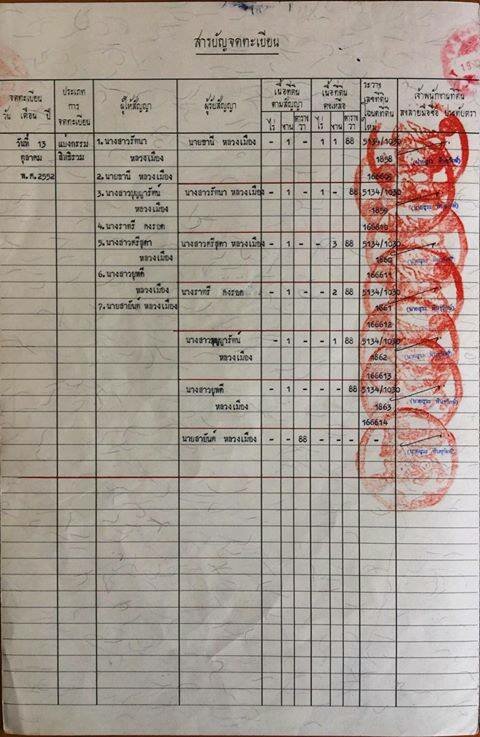 สารบัญจดทะเบียน
จดทะเบียน
วัน เดือน ปี
ประเภท
การ
จดทะเบียน
ผู้ให้สัญญา
ผู้รับสัญญา
เนื้อที่ดิน
ตามสัญญา
ไร่ งาน ตารางวา
เนื้อที่ดิน
คงเหลือ
ไร่ งาน ตารางวา
ระวาง
เลขที่ดิน
โฉนดที่ดิน
ใหม่
เจ้าพนักงานที่ดิน
ลงลายมือชื่อ ประทับตรา
วันที่ 13 แบ่งกรรม 1. นางสาวรัทนา นายธานี หลวงเมือง - 1 - - 1 1 88 5134/1030
ตุลาคม สิทธิ์รวม หลวงเมือง 1858
พ.ศ. 2552 2. นายธานี หลวงเมือง 166609
3. นางสาวบุญญารัตน์ นางสาวรัทนา หลวงเมือง - 1 - - 1 - 88 5134/1030
หลวงเมือง 1859
4. นางราตรี 166610
5. นางสาวศรีสุดา นางสาวศรีสุดา หลวงเมือง - 1 - - 3 88 5134/1030
หลวงเมือง 1860
6. นางสาวยุพดี 166611
หลวงเมือง นางราตรี - 1 - - 2 88 5134/1030
7. นายสายันต์ หลวงเมือง 1861
166612
นางสาวบุญญารัตน์ - 1 - - 1 88 5134/1030
หลวงเมือง 1862
166613
นางสาวยุพดี - 1 - - - 88 5134/1030
หลวงเมือง 1863
166614
นายสายันต์ หลวงเมือง - - 88 - - - -